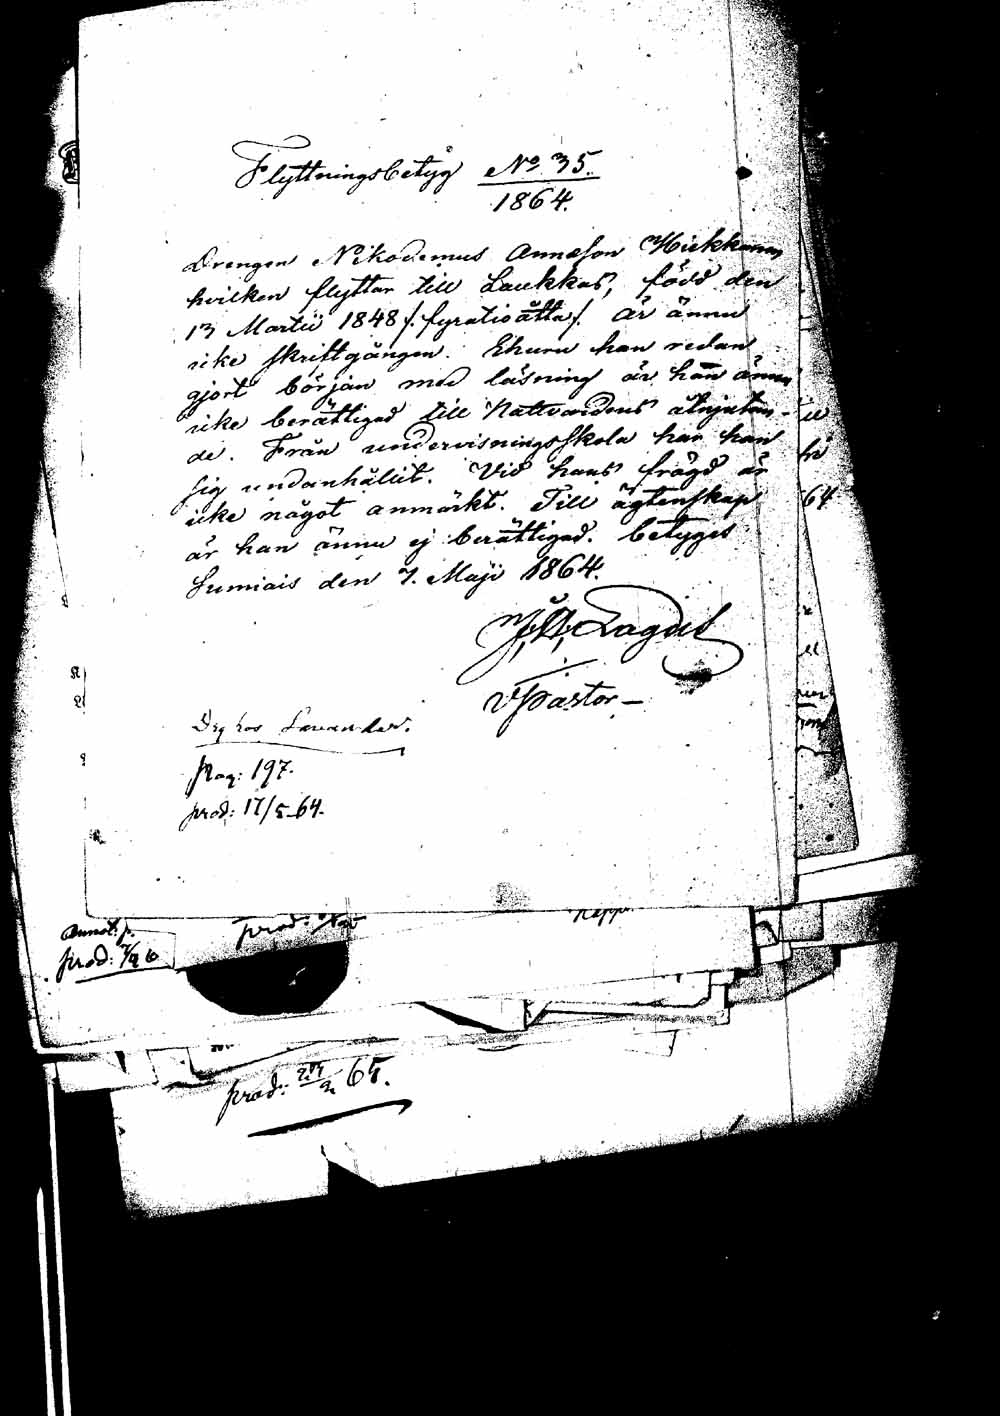 Flyttningsbetyg No 35.
1864.
Drengen Nikodemus Annæson Hiekkanen
hvilken flyttar till Laukkas, född den
13 Martii 1848 /. fyratioåtta /. är ännu
icke skriftgången. Ehuru han redan
gjort början med läsning är han ännu
icke berättigad till Nattvardens åtnjutan-
de. Från undervisningsskola har han
sig undanhållit. Vid hans frägd är
icke något anmärkt. Till ägtenskap
är han ännu ej berättigad. betyges
Sumiais den 7. Maji 1864.
Zagdis
VPastor –
hos
pag: 197.
prod: 17/5 64.
Annot: p.
prod:
prod:
prod: 65.
64